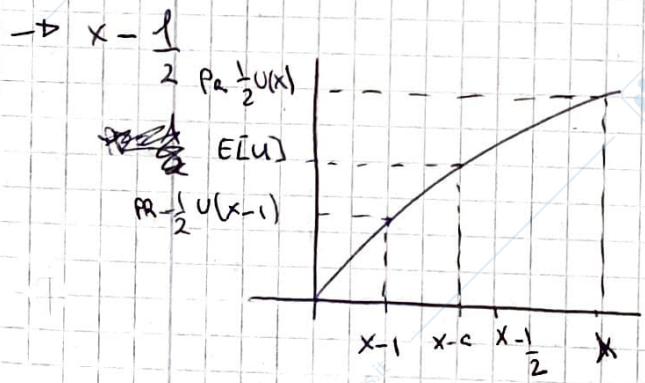 → x - 1/2
PR 1/2 U(x)
E[U]
PR - 1/2 U(x-1)
x-1 x-c x-1/2 x